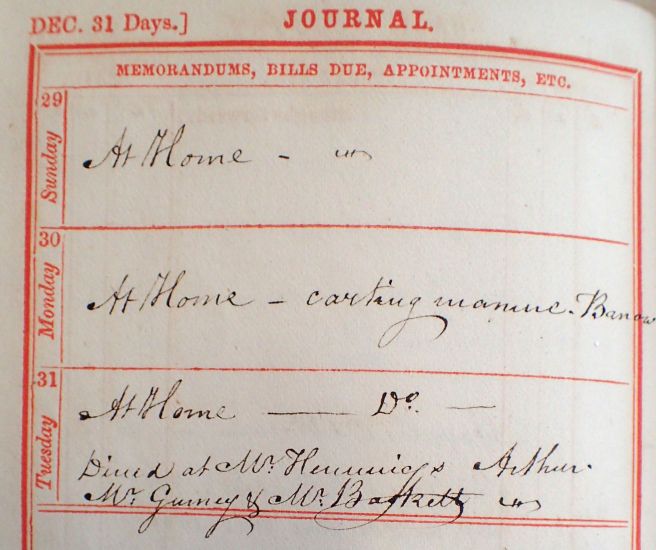 DEC. 31 Days.] JOURNAL.
MEMORANDUMS, BILLS DUE, APPOINTMENTS, ETC.
29 Sunday
At Home -
30 Monday
At Home - carting manure.
31 Tuesday
At Home — Do. —
Dined at Mr. Hennings Arthur.
Mr. Gurney & Mr. Baskett